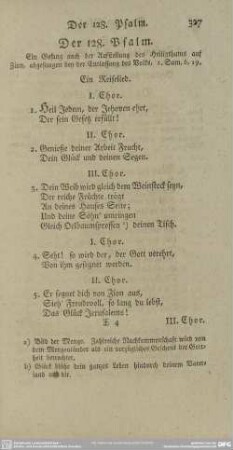 Der 128. Psalm. 327
Der 128. Psalm.
Ein Gesang nach der Aufstellung des Heiligthums auf
Zion, abgesungen bey der Entlassung des Volks. 2. Sam. 6, 19.
Ein Reiselied.
I. Chor.
1. Heil Jedem, der Jehoven ehrt,
Der sein Gesetz erfüllt!
II. Chor.
2. Genieße deiner Arbeit Frucht,
Dein Glück und deinen Segen.
III. Chor.
3. Dein Weib wird gleich dem Weinstock seyn,
Der reiche Früchte trägt
An deines Hauses Seite;
Und deine Söhn' umringen
Gleich Oelbaumsprossen a) deinen Tisch.
I. Chor.
4. Seht! so wird der, der Gott verehrt,
Von ihm gesegnet werden.
II. Chor.
5. Er segnet dich von Zion aus,
Sieh' Freudevoll, so lang du lebst,
Das Glück Jerusalems!
X 4 III. Chor.
a) Bild der Menge. Zahlreiche Nachkommenschaft wird von
dem Morgenländer als ein vorzügliches Geschenk der Gott-
heit betrachtet.
b) Glück blühe dein ganzes Leben hindurch deinem Vater-
land auf dir.